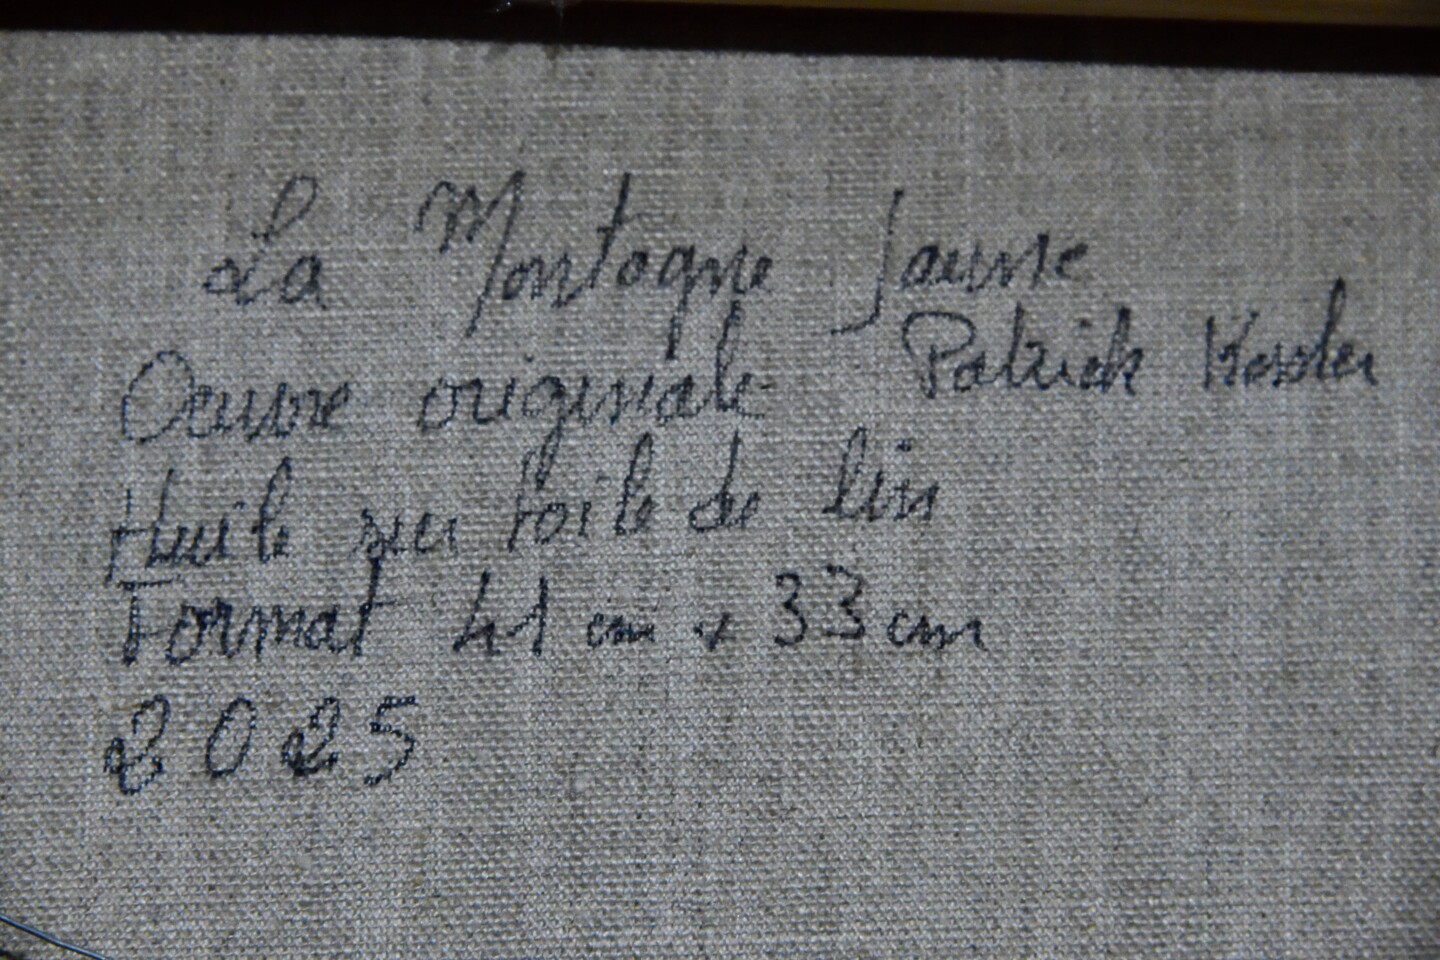 La Montagne Jaune
Oeuvre originale Patrick Kessler
Huile sur toile de lin
Format 41 cm x 33 cm
2025